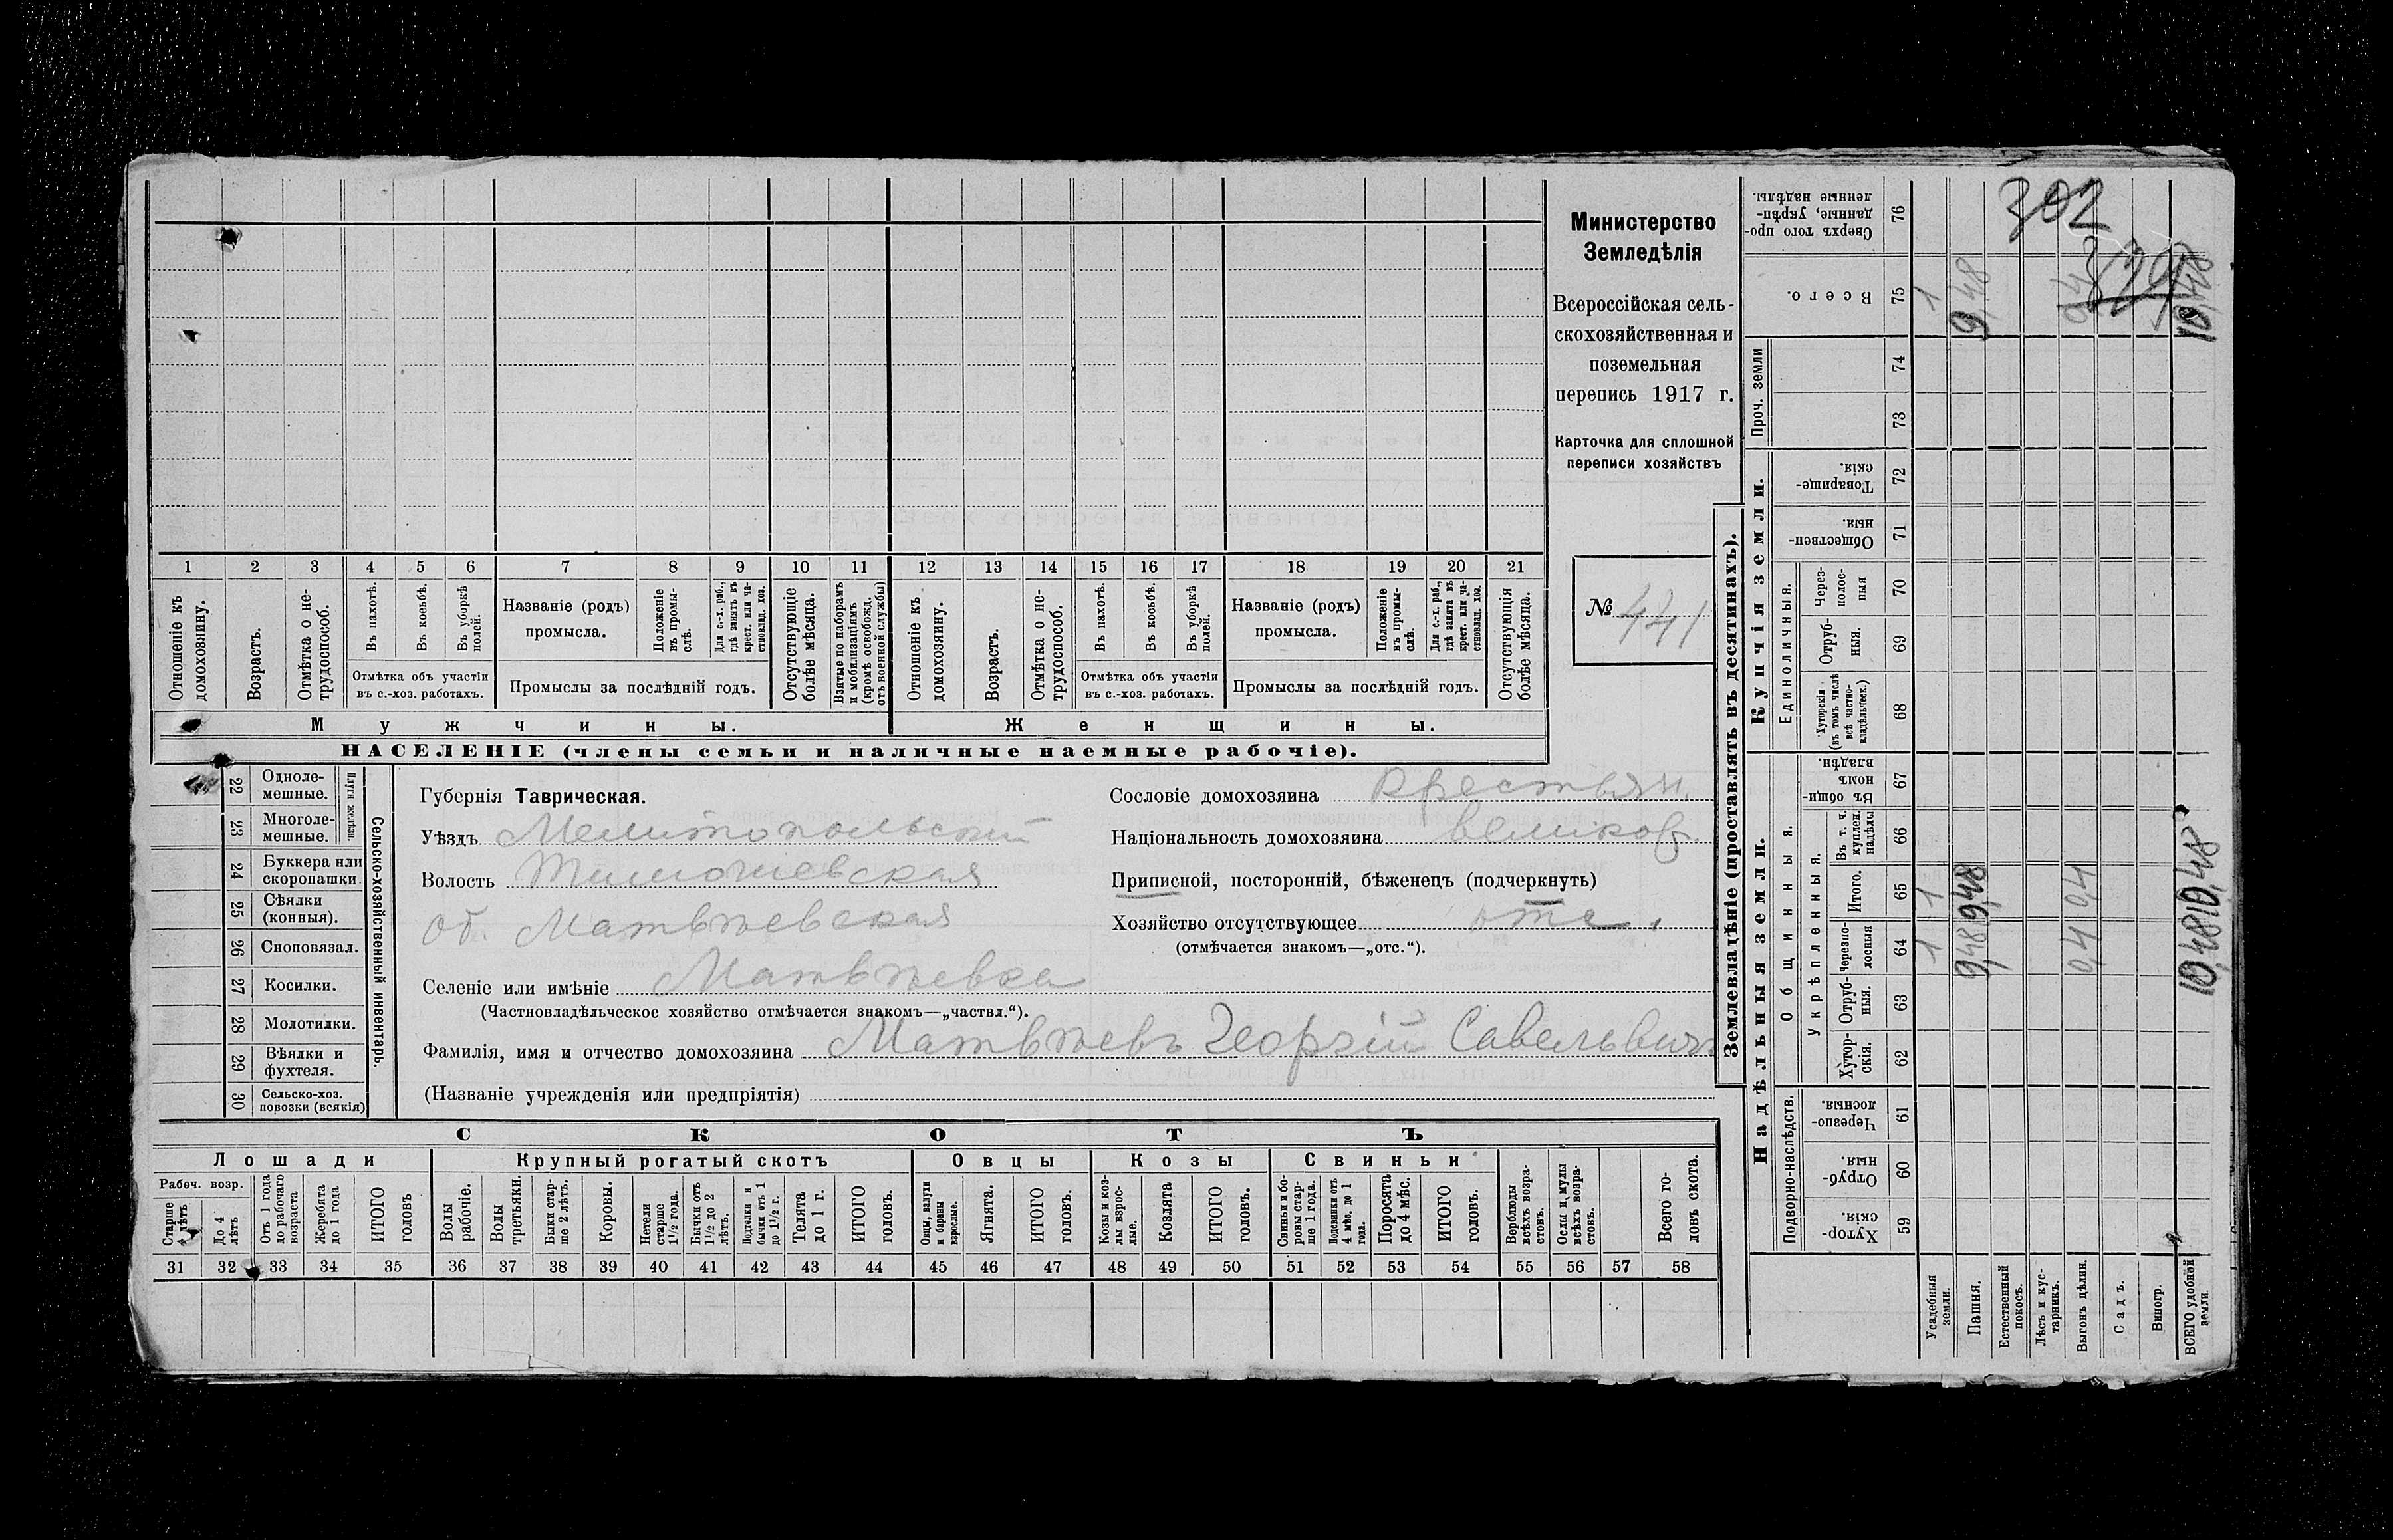 1 2 3 4 5 6 7 8 9 10 11 12 13 14 15 16 17 18 19 20 21
Отношеніе къ домохозяину.
Возрастъ.
Отмѣтка о не-
трудоспособ.
Въ пахотѣ.
Въ косьбѣ.
Въ уборкѣ
полей.
Отмѣтка объ участіи
въ с.-хоз. работахъ.
Названіе (родъ)
промысла.
Положеніе
въ промы-
слѣ.
Для с.-х. раб.,
гдѣ занятъ въ
крест. или ча-
стновлад. хоз.
Промыслы за послѣдній годъ.
Отсутствующіе
болѣе мѣсяца.
Взятые по наборамъ
и мобилизаціямъ
(кромѣ освобожд.
отъ военной службы)
Отношеніе къ
домохозяину.
Возрастъ.
Отмѣтка о не-
трудоспособ.
Въ пахотѣ.
Въ косьбѣ.
Въ уборкѣ
полей.
Отмѣтка объ участіи
въ с.-хоз. работахъ.
Названіе (родъ)
промысла.
Положеніе
въ промы-
слѣ.
Для с.-х. раб.,
гдѣ занята въ
крест. или ча-
стновлад. хоз.
Промыслы за послѣдній годъ.
Отсутствующія
болѣе мѣсяца.
Мужчины. Женщины.
НАСЕЛЕНІЕ (члены семьи и наличные наемные рабочіе).
Министерство
Земледѣлія
Всероссійская сель-
скохозяйственная и
поземельная
перепись 1917 г.
Карточка для сплошной
переписи хозяйствъ
№ 441
22 Одноле-
мешные.
23 Многоле-
мешные.
Плуги желѣзн.
24 Буккера или
скоропашки
25 Сѣялки
(конныя).
26 Сноповязал.
27 Косилки.
28 Молотилки.
29 Вѣялки и
фухтеля.
30 Сельско-хоз.
повозки (всякія)
Сельско-хозяйственный инвентарь.
Губернія Таврическая.
Уѣздъ Мелитопольский
Волость Тимошевская
об. Матвѣевская
Селеніе или имѣніе Матвѣевка
(Частновладѣльческое хозяйство отмѣчается знакомъ—„частвл.“).
Фамилія, имя и отчество домохозяина Матвѣевъ Георгій Савельевич
(Названіе учрежденія или предпріятія)
Сословіе домохозяина крестьян.
Національность домохозяина великор.
Приписной, посторонній, бѣженецъ (подчеркнуть)
Хозяйство отсутствующее отс.
(отмѣчается знакомъ—„отс.“).
СКОТЪ
Лошади Крупный рогатый скотъ Овцы Козы Свиньи
Рабоч. возр.
Старше
4 лѣтъ
До 4
лѣтъ
Отъ 1 года
до рабочаго
возраста
Жеребята
до 1 года
ИТОГО
головъ
Волы
рабочіе.
Волы
третьяки.
Быки стар-
ше 2 лѣтъ.
Коровы.
Нетели
старше
1½ года.
Бычки отъ
1½ до 2
лѣтъ.
Подтелки и
бычки отъ 1
до 1½ г.
Телята
до 1 г.
ИТОГО
головъ.
Овцы, валухи
и бараны
взрослые.
Ягнята.
ИТОГО
головъ.
Козы и коз-
лы взрос-
лые.
Козлята
ИТОГО
головъ.
Свиньи и бо-
ровы стар-
ше 1 года.
Подсвинки отъ
4 мѣс. до 1
года.
Поросята
до 4 мѣс.
ИТОГО
головъ.
Верблюды
всѣхъ возра-
стовъ.
Ослы и мулы
всѣхъ возра-
стовъ.
Всего го-
ловъ скота.
31 32 33 34 35 36 37 38 39 40 41 42 43 44 45 46 47 48 49 50 51 52 53 54 55 56 57 58
Землевладѣніе (проставлять въ десятинахъ).
Сверхъ того про-
данные, укрѣп-
ленные надѣлы.
76
302
Всего.
75 1 9,48 0,4 10,48
Проч. земли
74
73
Купчія земли.
Товарище-
скія.
72
Обществен-
ныя.
71
Единоличныя.
Через-
полос-
ныя
70
Отруб-
ныя.
69
Хуторскія
(въ томъ числѣ
всѣ частно-
владѣльческ.)
68
Надѣльныя земли.
Общинныя.
Въ общин-
номъ
владѣн.
67
Укрѣпленныя.
Въ т. ч.
куплен.
надѣлы
66
Итого.
65 1 9,48 0,4 10,48
Черезпо-
лосныя
64 1 9,48 0,4 10,48
Отруб-
ныя.
63
Хутор-
скія.
62
Подворно-наслѣдств.
Черезпо-
лосныя.
61
Отруб-
ныя.
60
Хутор-
скія.
59
Усадебныя
земли.
Пашня.
Естественный
покосъ.
Лѣсъ и кус-
тарникъ.
Выгонъ цѣлин.
Садъ.
Виногр.
ВСЕГО удобной
земли.